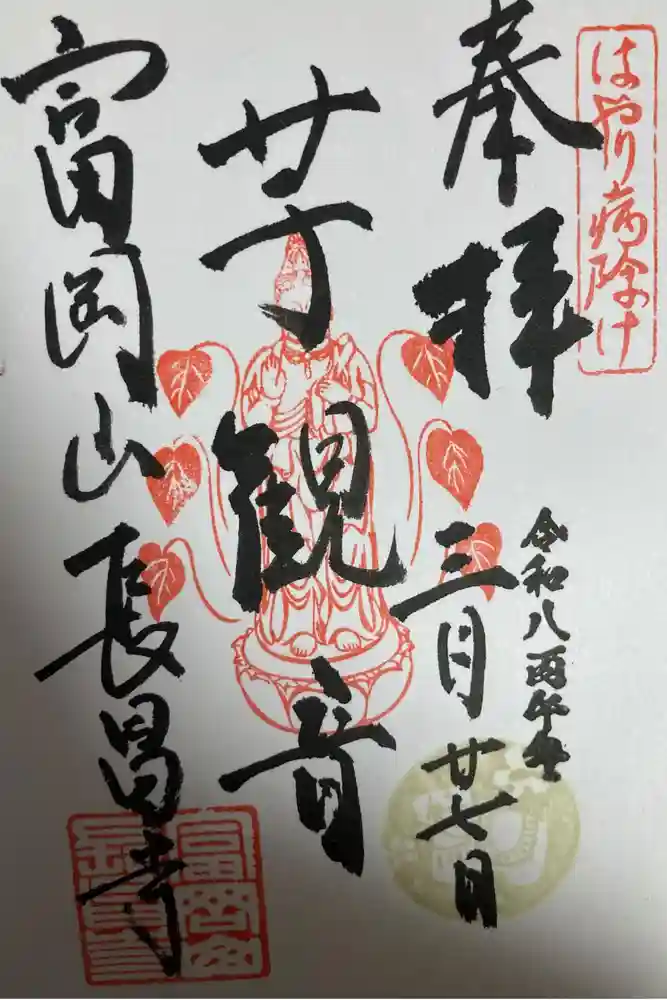 はやり病除け
奉拝
令和八丙午年
三月廿七日
芋観音
富岡山長昌寺
富岡山
長昌寺